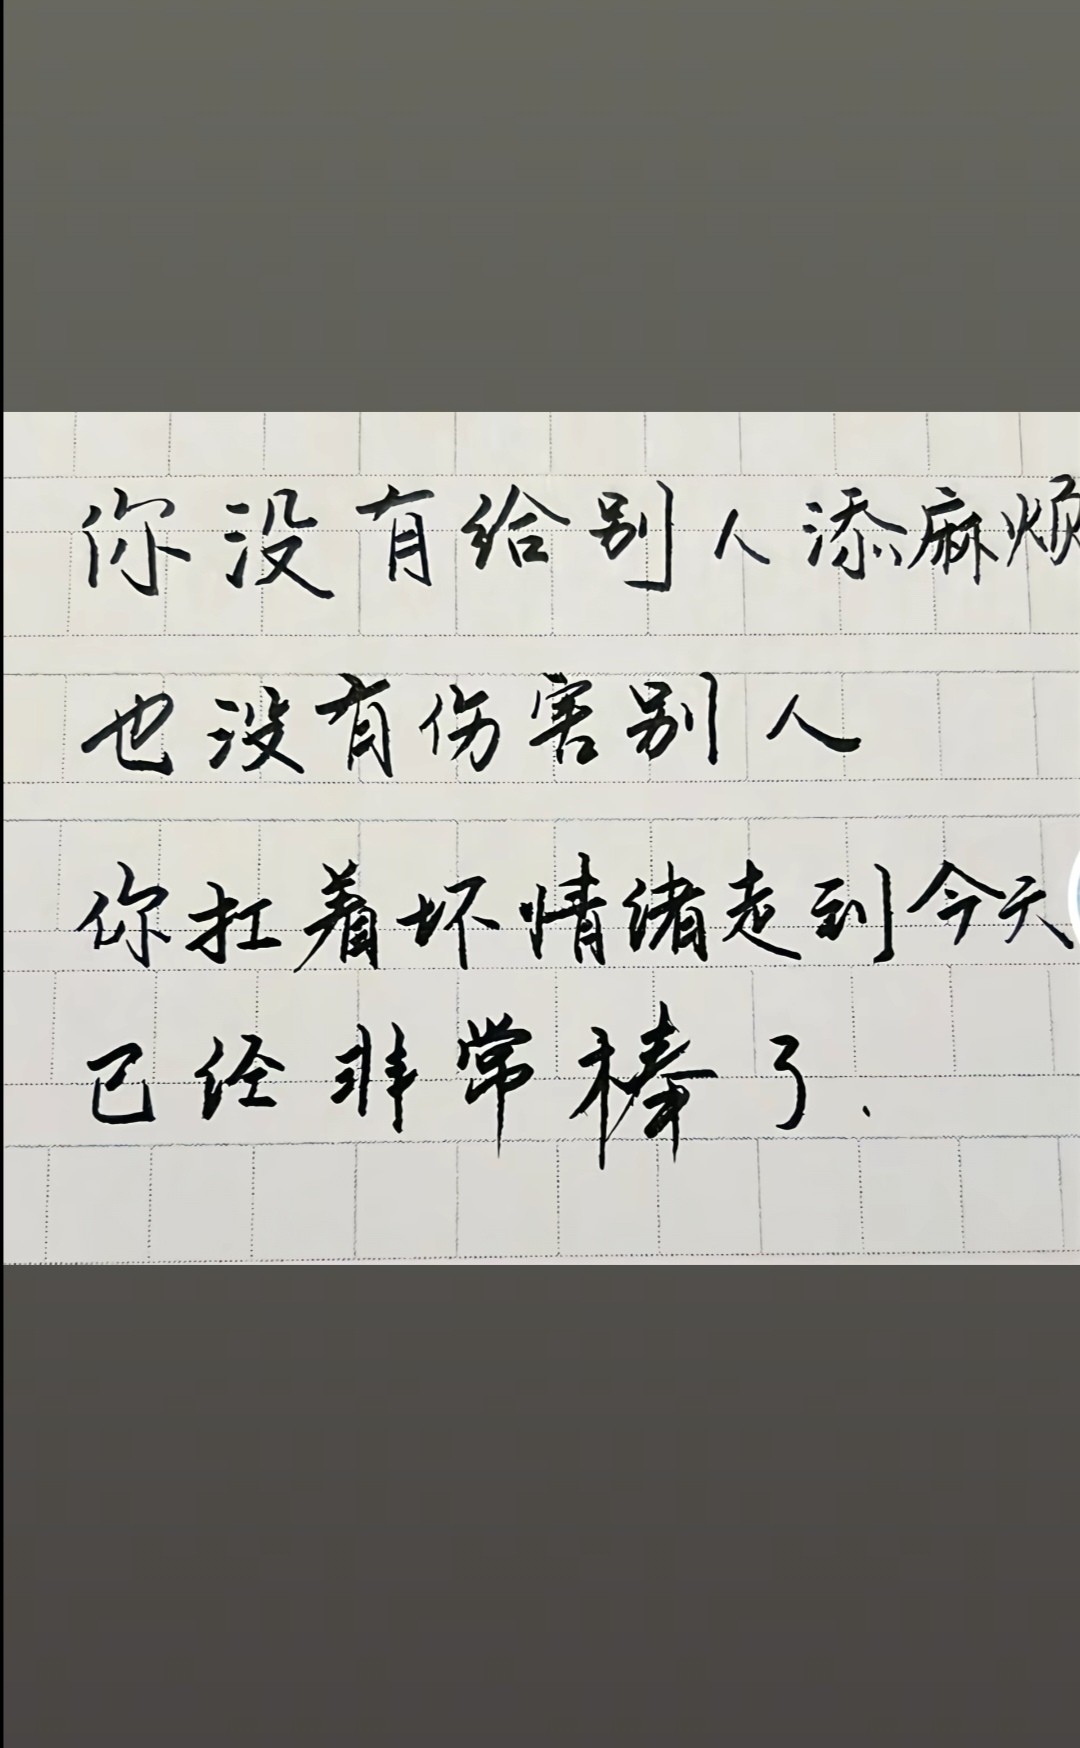 你没有给别人添麻烦
也没有伤害别人
你扛着坏情绪走到今天
已经非常棒了.